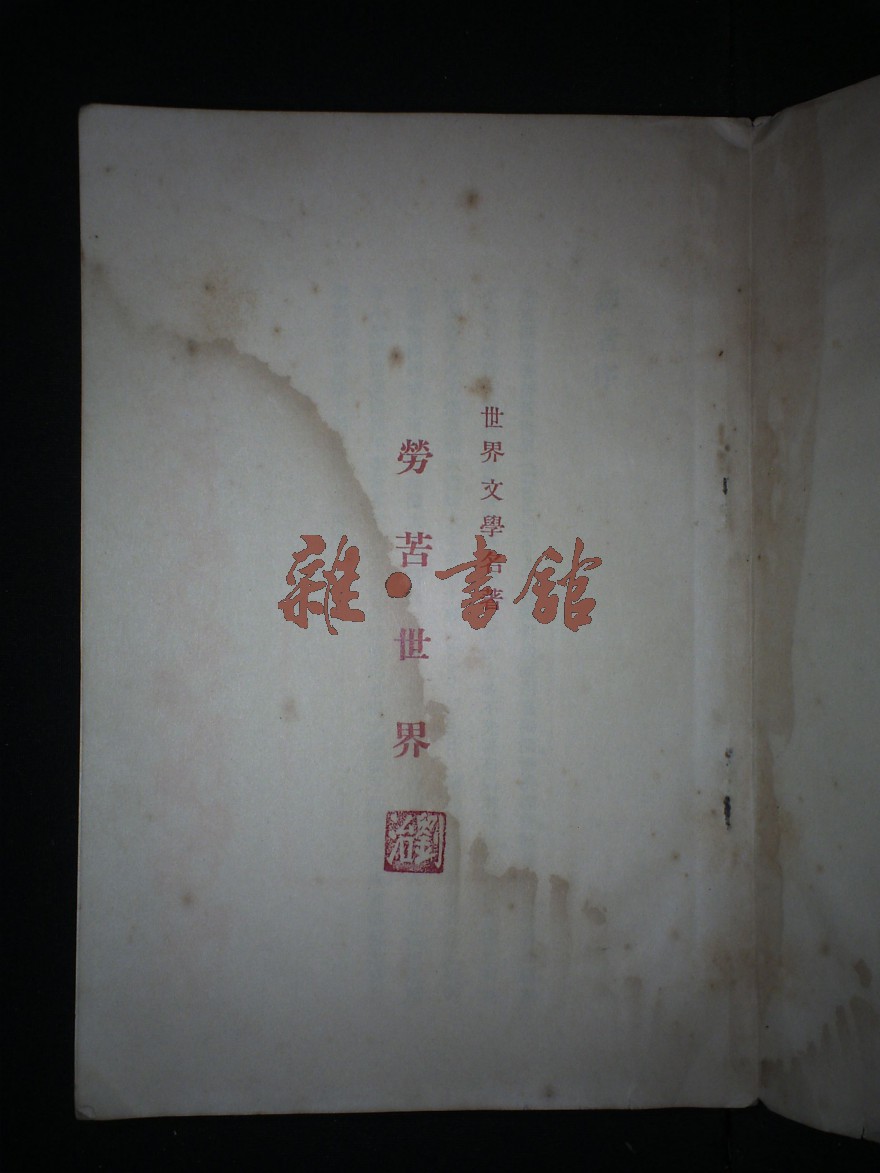 世界文學名著
勞苦世界
雜·書館
劉